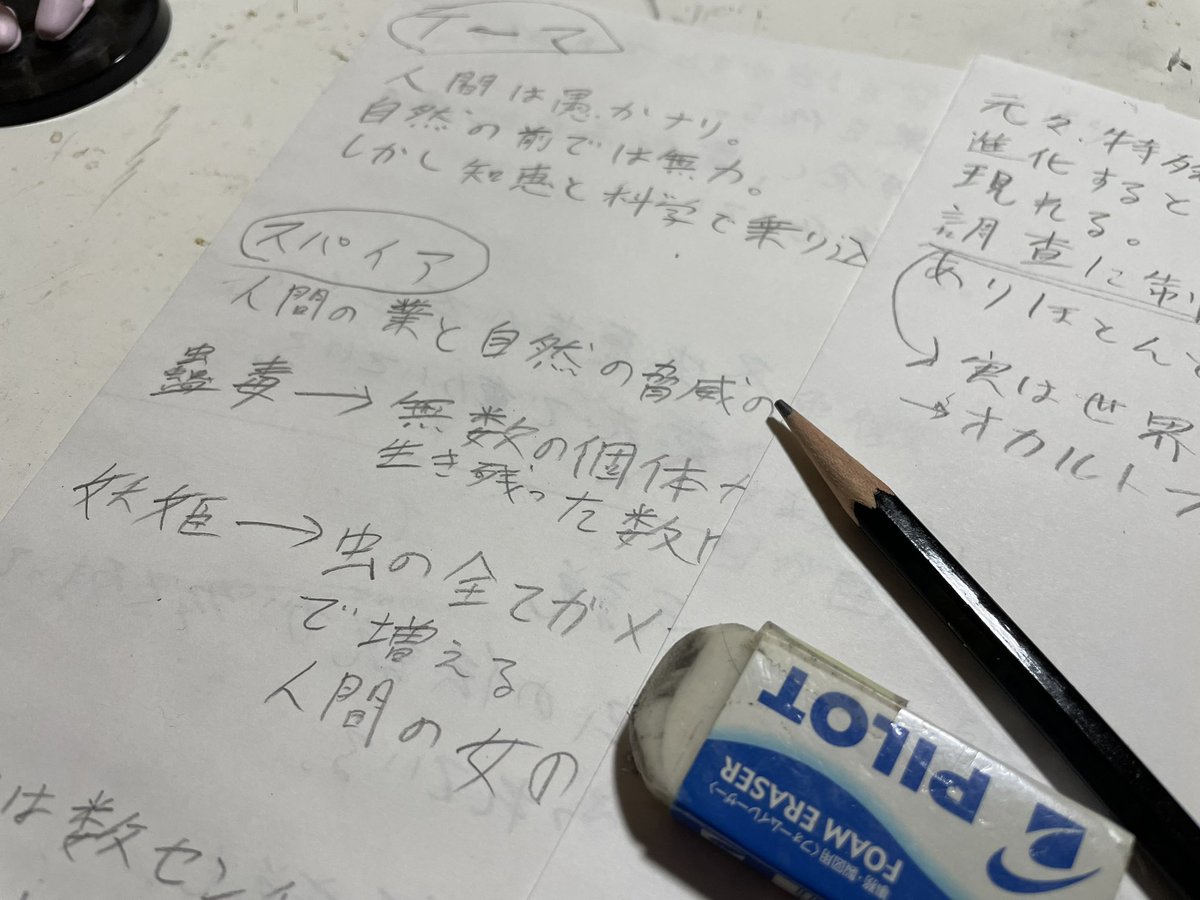 テーマ
人間は愚かナリ。
自然の前では無力。
しかし知恵と科学で乗り込
スパイア
人間の業と自然の脅威の
蠱毒→無数の個体
生き残った数
妖姫→虫の全てがメ
で増える
人間の女の
は数セン
元々、特殊
進化すると
現れる。
調査に制
ありほとんど
実は世界
→オカルト
PILOT
FOAM ERASER
事務・製図用〈フォームイレーザー〉